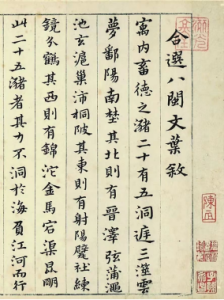 合選八閩文葉敘
寓內畜德之瀦二十有五洞庭三澨雲
夢鄱陽南埜其北則有晉澤弦蒲
池玄滬巢沛桐陂其東則有射陽甓社練
鏡久鶴其西則有錦沱金馬宕渠昆明
此二十五瀦者其力不洞於海負江河而行